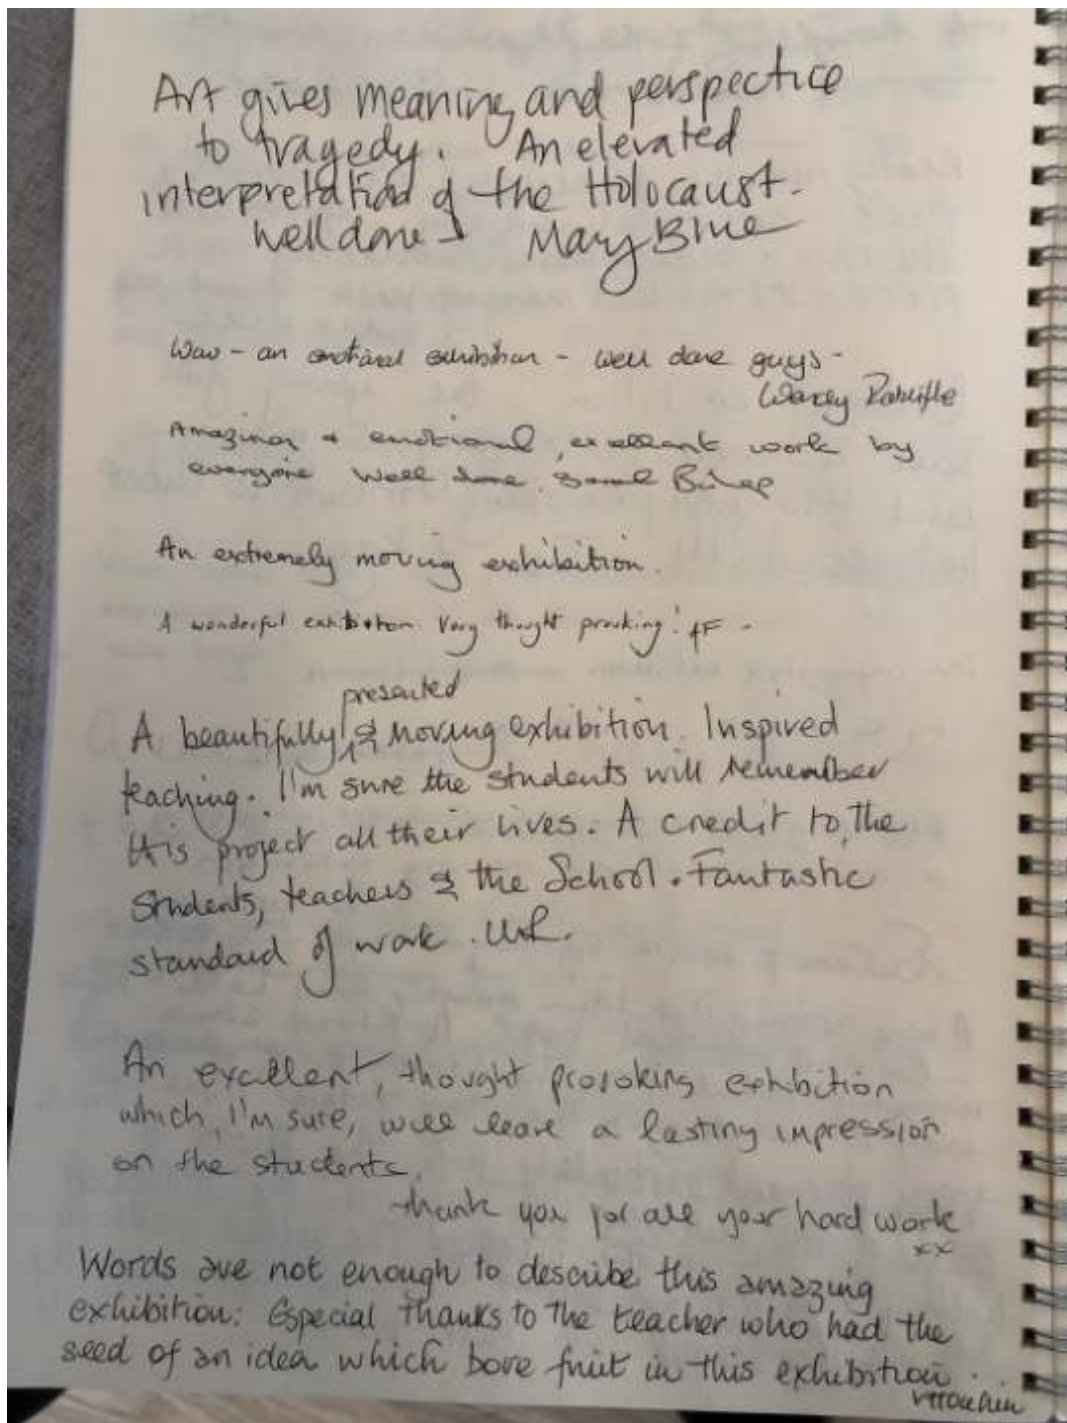 Art gives meaning and perspective
to tragedy. An elevated
interpretation of the Holocaust.
Well done - Mary Blue
Wow - an emotional exhibition - well done guys -
Amazing + emotional, excellent work by
everyone Well done. Sarah
An extremely moving exhibition.
A wonderful exhibition. Very thought provoking! AF -
presented
A beautifully & moving exhibition. Inspired
teaching. I'm sure the students will remember
this project all their lives. A credit to the
students, teachers & the School. Fantastic
standard of work.
An excellent, thought provoking exhibition
which, I'm sure, will leave a lasting impression
on the students.
thank you for all your hard work
xx
Words are not enough to describe this amazing
exhibition: Especial thanks to the teacher who had the
seed of an idea which bore fruit in this exhibition.